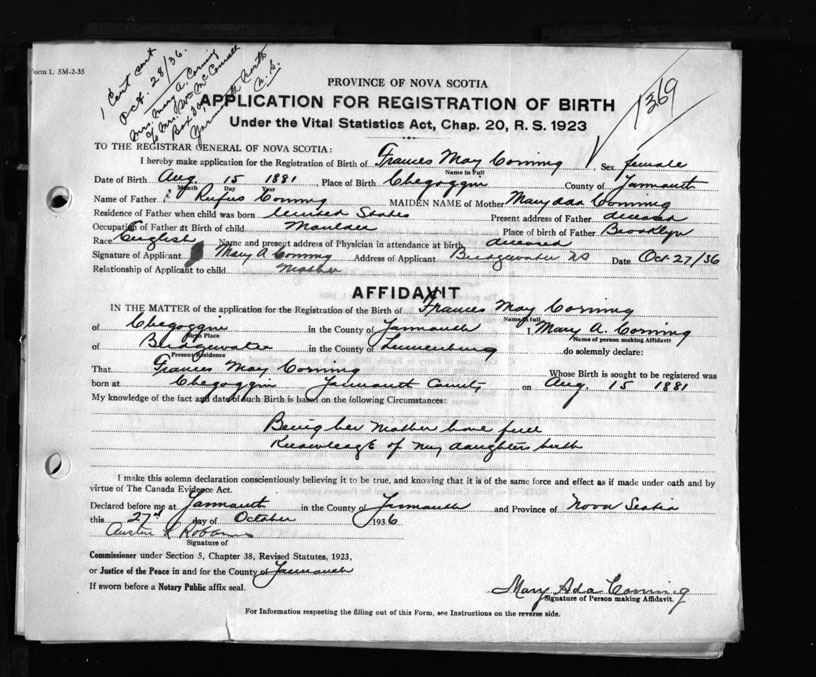 Form 1. 5M-2-35
1 Cert sent
Oct. 28/36.
Mrs. Mary A. Corning
c/o Mrs. McConnell
Box
Yarmouth North
N.S.
1369
PROVINCE OF NOVA SCOTIA
APPLICATION FOR REGISTRATION OF BIRTH
Under the Vital Statistics Act, Chap. 20, R. S. 1923
TO THE REGISTRAR GENERAL OF NOVA SCOTIA:
I hereby make application for the Registration of Birth of Frances May Corning, Sex female
Name in Full
Date of Birth Aug. 15 1881, Place of Birth Chegoggin County of Yarmouth
Month Day Year
Name of Father Rufus Corning MAIDEN NAME of Mother Mary Ada Corning
Residence of Father when child was born United States Present address of Father deceased
Occupation of Father at Birth of child Moulder Place of birth of Father Brooklyn
Race English Name and present address of Physician in attendance at birth deceased
Signature of Applicant Mary A Corning Address of Applicant Bridgewater NS Date Oct 27/36
Relationship of Applicant to child Mother
AFFIDAVIT
IN THE MATTER of the application for the Registration of the Birth of Frances May Corning
Name in full
of Chegoggin in the County of Yarmouth I, Mary A. Corning
Birth Place Name of person making Affidavit
of Bridgewater in the County of Lunenburg do solemnly declare:
Present Residence
That Frances May Corning Whose Birth is sought to be registered was
born at Chegoggin Yarmouth County on Aug. 15 1881
My knowledge of the fact and date of such Birth is based on the following Circumstances:
Being her Mother have full
Knowledge of my daughters birth
I make this solemn declaration conscientiously believing it to be true, and knowing that it is of the same force and effect as if made under oath and by
virtue of The Canada Evidence Act.
Declared before me at Yarmouth in the County of Yarmouth and Province of Nova Scotia
this 27th day of October 1936
Austin Robbins
Signature of
Commissioner under Section 5, Chapter 38, Revised Statutes, 1923,
or Justice of the Peace in and for the County of Yarmouth
If sworn before a Notary Public affix seal.
Mary Ada Corning
Signature of Person making Affidavit.
For Information respecting the filling out of this Form, see Instructions on the reverse side.